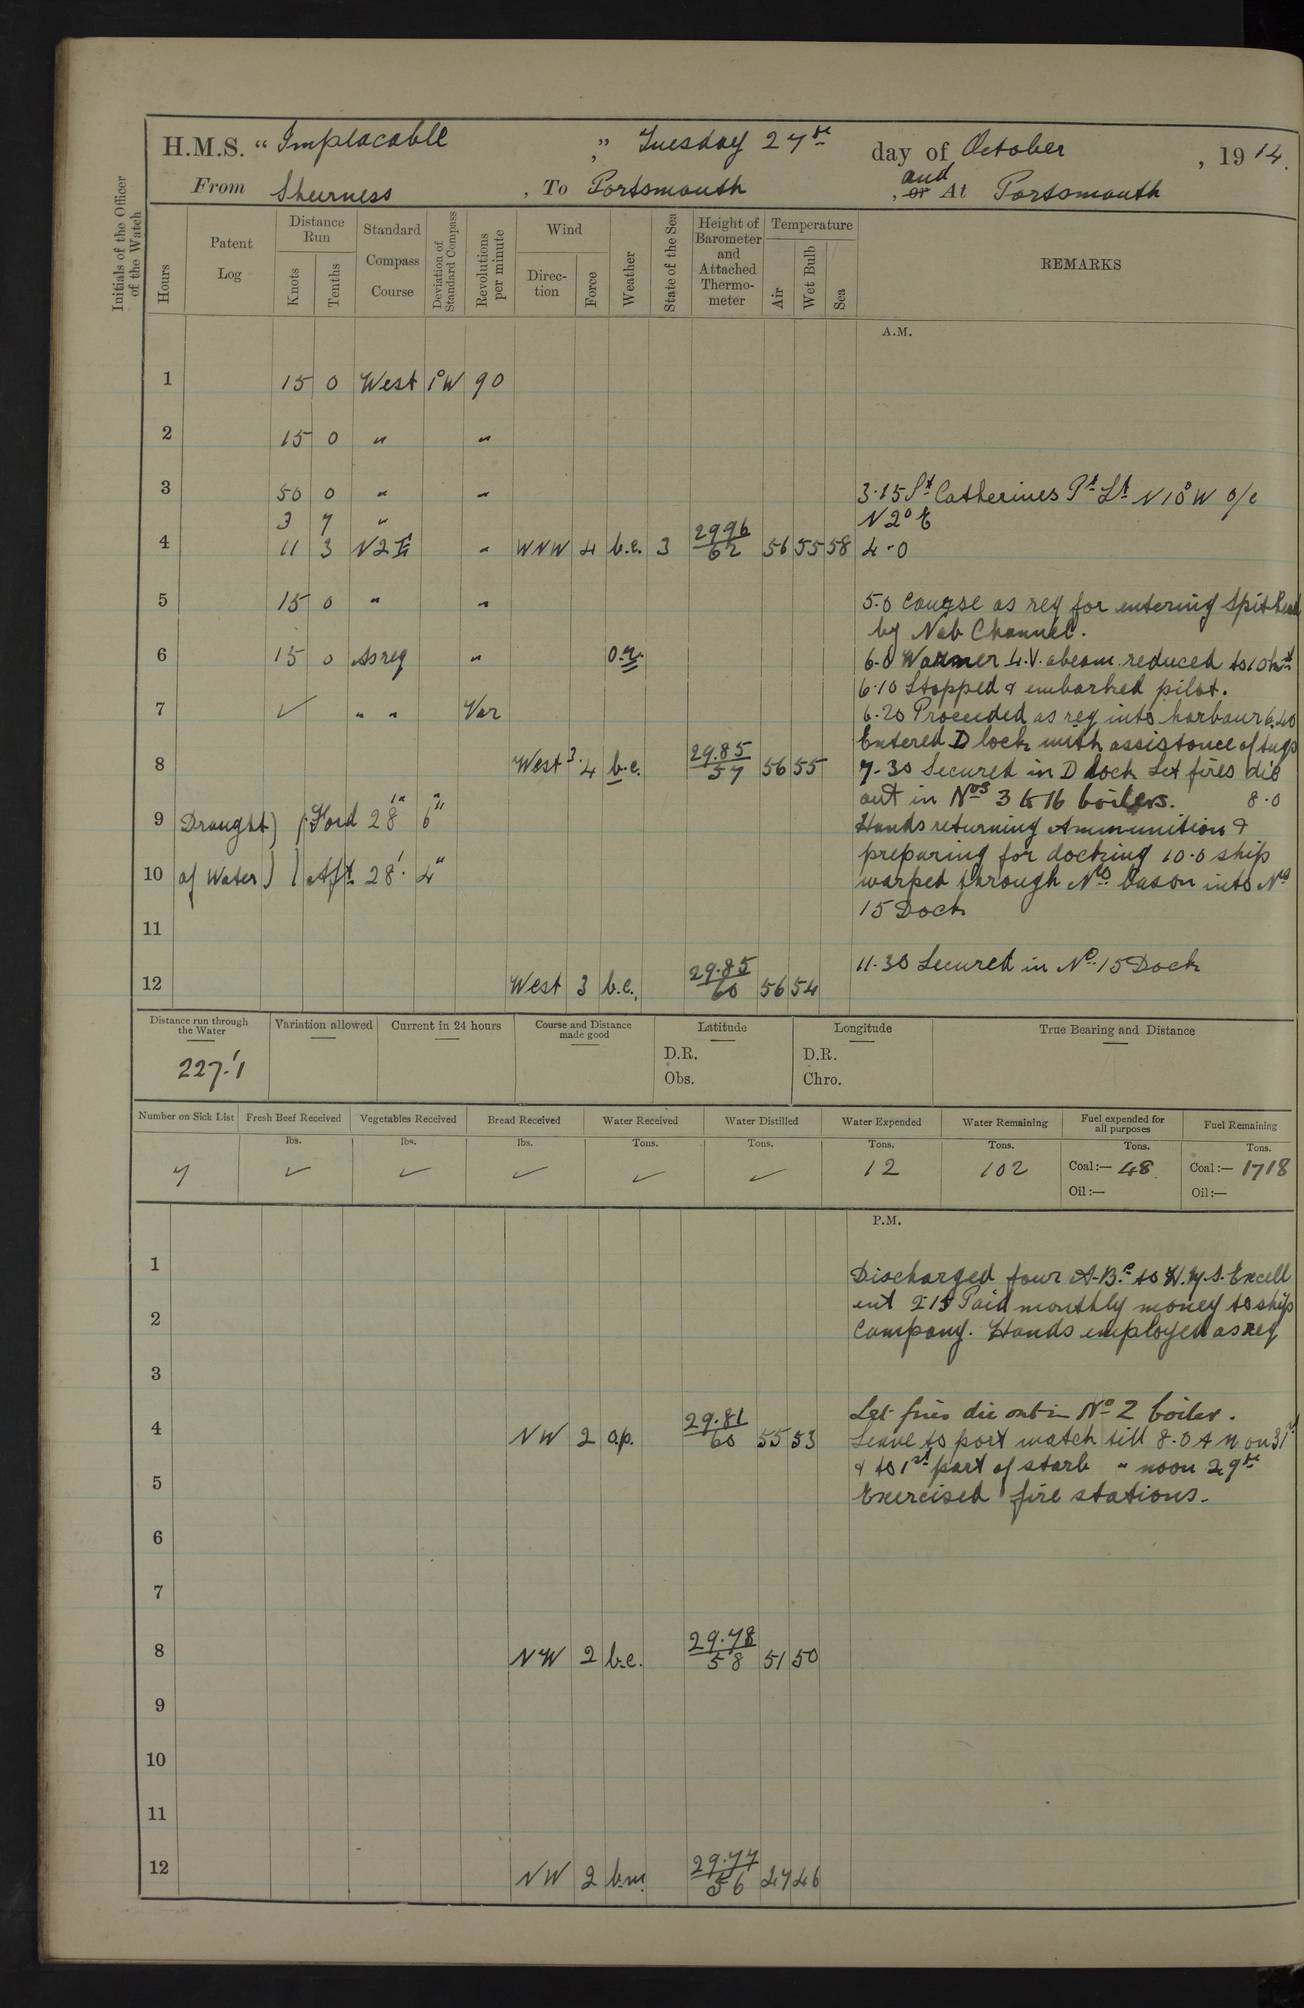 H.M.S. " Implacable , " Tuesday 27th day of October , 1914.
From Sheerness , To Portsmouth , or and At Portsmouth
Initials of the Officer of the Watch
Hours
Patent Log
Distance Run
Knots
Tenths
Standard Compass Course
Deviation of Standard Compass
Revolutions per minute
Wind
Direction
Force
Weather
State of the Sea
Height of Barometer and Attached Thermometer
Temperature
Air
Wet Bulb
Sea
REMARKS
A.M.
1 15 0 West 1°W 90
2 15 0 " "
3 50 0 " " 3.15 St Catherines Pt Lt N10°W o/c
3 7 " N2°E
4 11 3 N2E " WNW 4 b.c. 3 29.96 62 56 55 58 4.0
5 15 0 " " 5.0 Course as req for entering Spithead
by Nab Channel.
6 15 0 As req " o.r. 6.0 Warner L.V. abeam reduced to 10 kts
6.10 Stopped & embarked pilot.
7 ✓ " " Var 6.20 Proceeded as req into harbour 6.40
Entered D lock with assistance of tugs
8 West 3.4 b.c. 29.85 57 56 55 7.30 Secured in D lock Let fires die
out in Nos 3 to 16 boilers. 8.0
9 Draught) (Ford 28' 6" Hands returning Ammunition &
preparing for docking 10.0 ship
10 of Water) (Aft. 28'. 4" warped through No bason into No
15 Dock
11
11.30 Secured in No. 15 Dock
12 West 3 b.c. 29.85 60 56 54
Distance run through the Water
Variation allowed
Current in 24 hours
Course and Distance made good
Latitude
Longitude
True Bearing and Distance
D.R. D.R.
227.'1
Obs. Chro.
Number on Sick List
Fresh Beef Received
Vegetables Received
Bread Received
Water Received
Water Distilled
Water Expended
Water Remaining
Fuel expended for all purposes
Fuel Remaining
lbs. lbs. lbs. Tons. Tons. Tons. Tons. Tons. Tons.
7 ✓ ✓ ✓ ✓ ✓ 12 102 Coal:— 48 Coal:— 1718
Oil:— Oil:—
P.M.
1
Discharged four A.Bs to H.M.S. Excell
ent 2.15 Paid monthly money to ships
2 Company. Hands employed as req
3
Let fires die out in No 2 boiler.
4 NW 2 o.p. 29.81 60 55 53 Leave to port watch till 8.0 AM on 31st
& to 1st part of starb " noon 29th
5 Exercised fire stations.
6
7
8 NW 2 b.c. 29.78 58 51 50
9
10
11
12 NW 2 b.m. 29.77 56 47 46